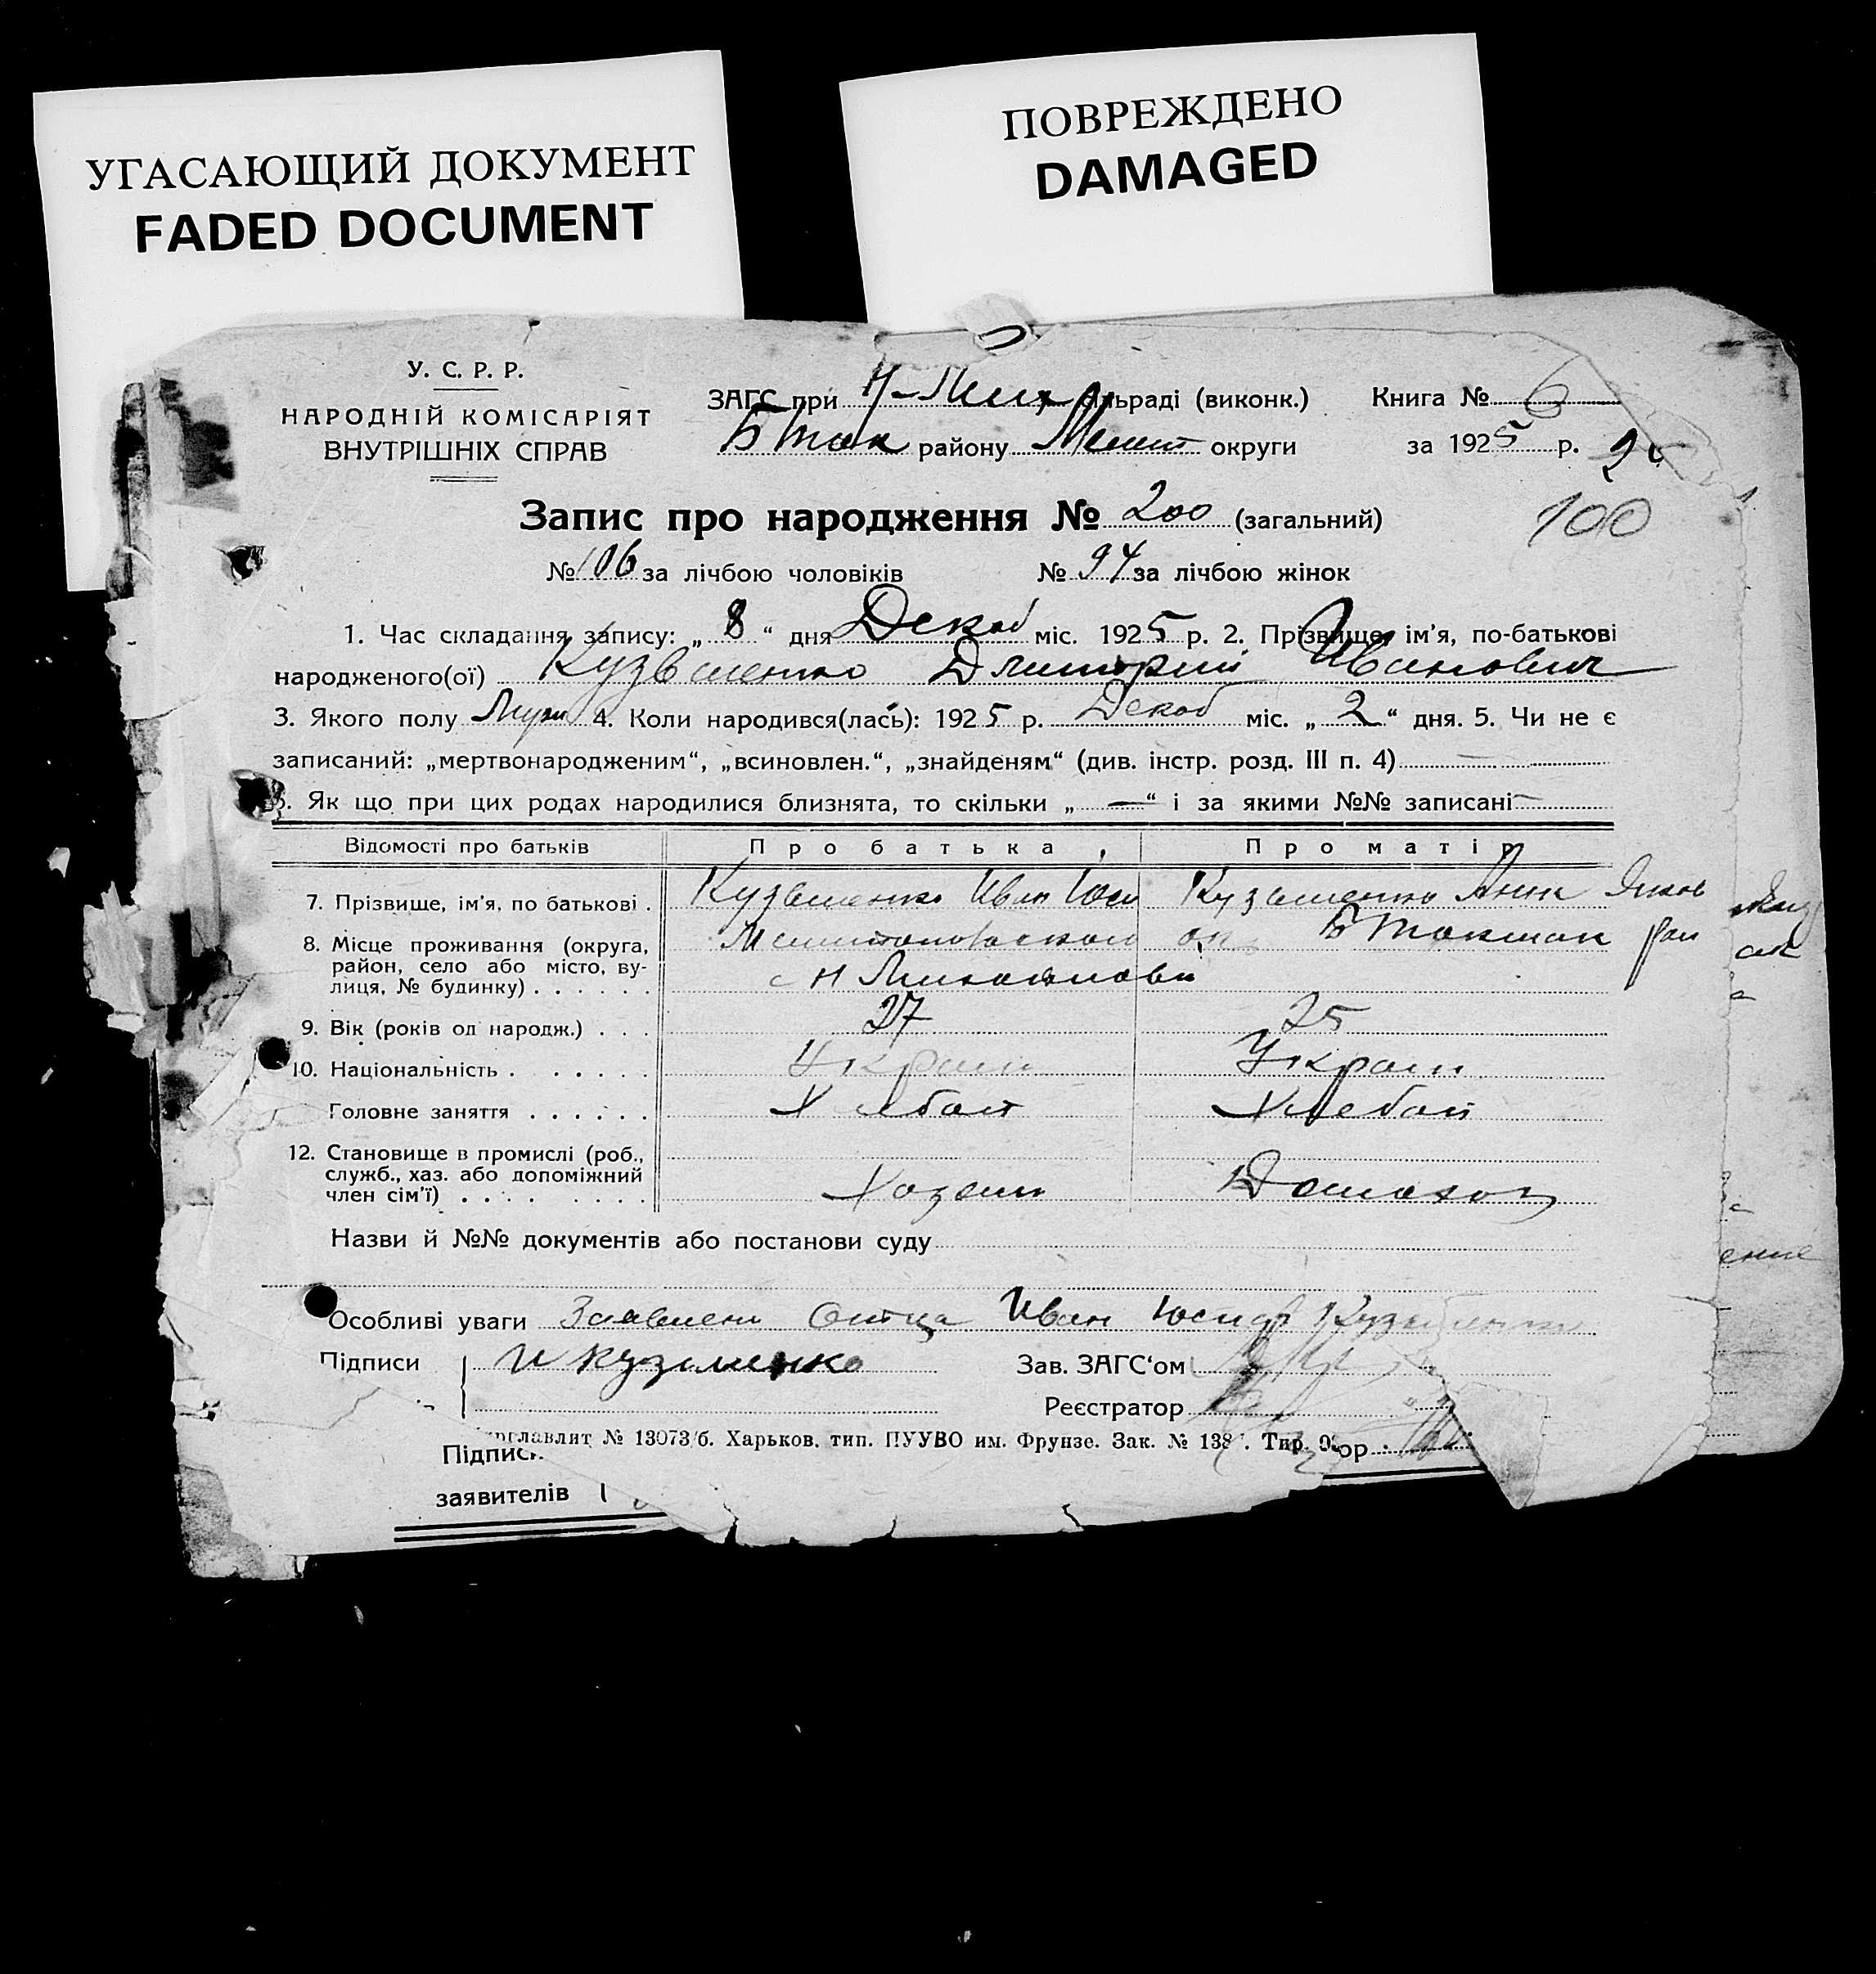 УГАСАЮЩИЙ ДОКУМЕНТ
FADED DOCUMENT
ПОВРЕЖДЕНО
DAMAGED
У. С. Р. Р.
НАРОДНІЙ КОМІСАРІЯТ
ВНУТРІШНІХ СПРАВ
ЗАГС при Н-Мих сільраді (виконк.) Книга № 6
Б Ток району Мелит округи за 1925 р.
100
Запис про народження № 200 (загальний)
№ 106 за лічбою чоловіків № 94 за лічбою жінок
1. Час складання запису: „ 8 “ дня Декаб міс. 1925 р. 2. Прізвище, ім’я, по-батькові
народженого(ої) Кузьменко Дмитрий Иванович
3. Якого полу Муж 4. Коли народився(лась): 1925 р. Декаб міс. „ 2 “ дня. 5. Чи не є
записаний: „мертвонародженим“, „всиновлен.“, „знайденям“ (див. інстр. розд. III п. 4) —
6. Як що при цих родах народилися близнята, то скільки „ — “ і за якими №№ записані —
Відомості про батьків Про батька Про матір
7. Прізвище, ім’я, по батькові . Кузьменко Иван Юси Кузьменко Анна Яковл
8. Місце проживання (округа, Мелитопольском ок Б Токмак рай
район, село або місто, ву- с Н Михайловка
лиця, № будинку) . . . . . .
9. Вік (років од народж.) . . . 27 25
10. Національність . . . . . . Украин Украин
Головне заняття . . . . . . Хлебоп Хлебоп
12. Становище в промислі (роб.,
служб., хаз. або допоміжний Хозяин Домохоз
член сім’ї) . . . . . . . .
Назви й №№ документів або постанови суду
Особливі уваги Заявлени Отца Иван Юсиф Кузьменко
Підписи И Кузьменко Зав. ЗАГС‘ом
Реєстратор
№ 13073/б. Харьков. тип. ПУУВО им. Фрунзе. Зак. № 138 . Тир.
Підпис
заявителів